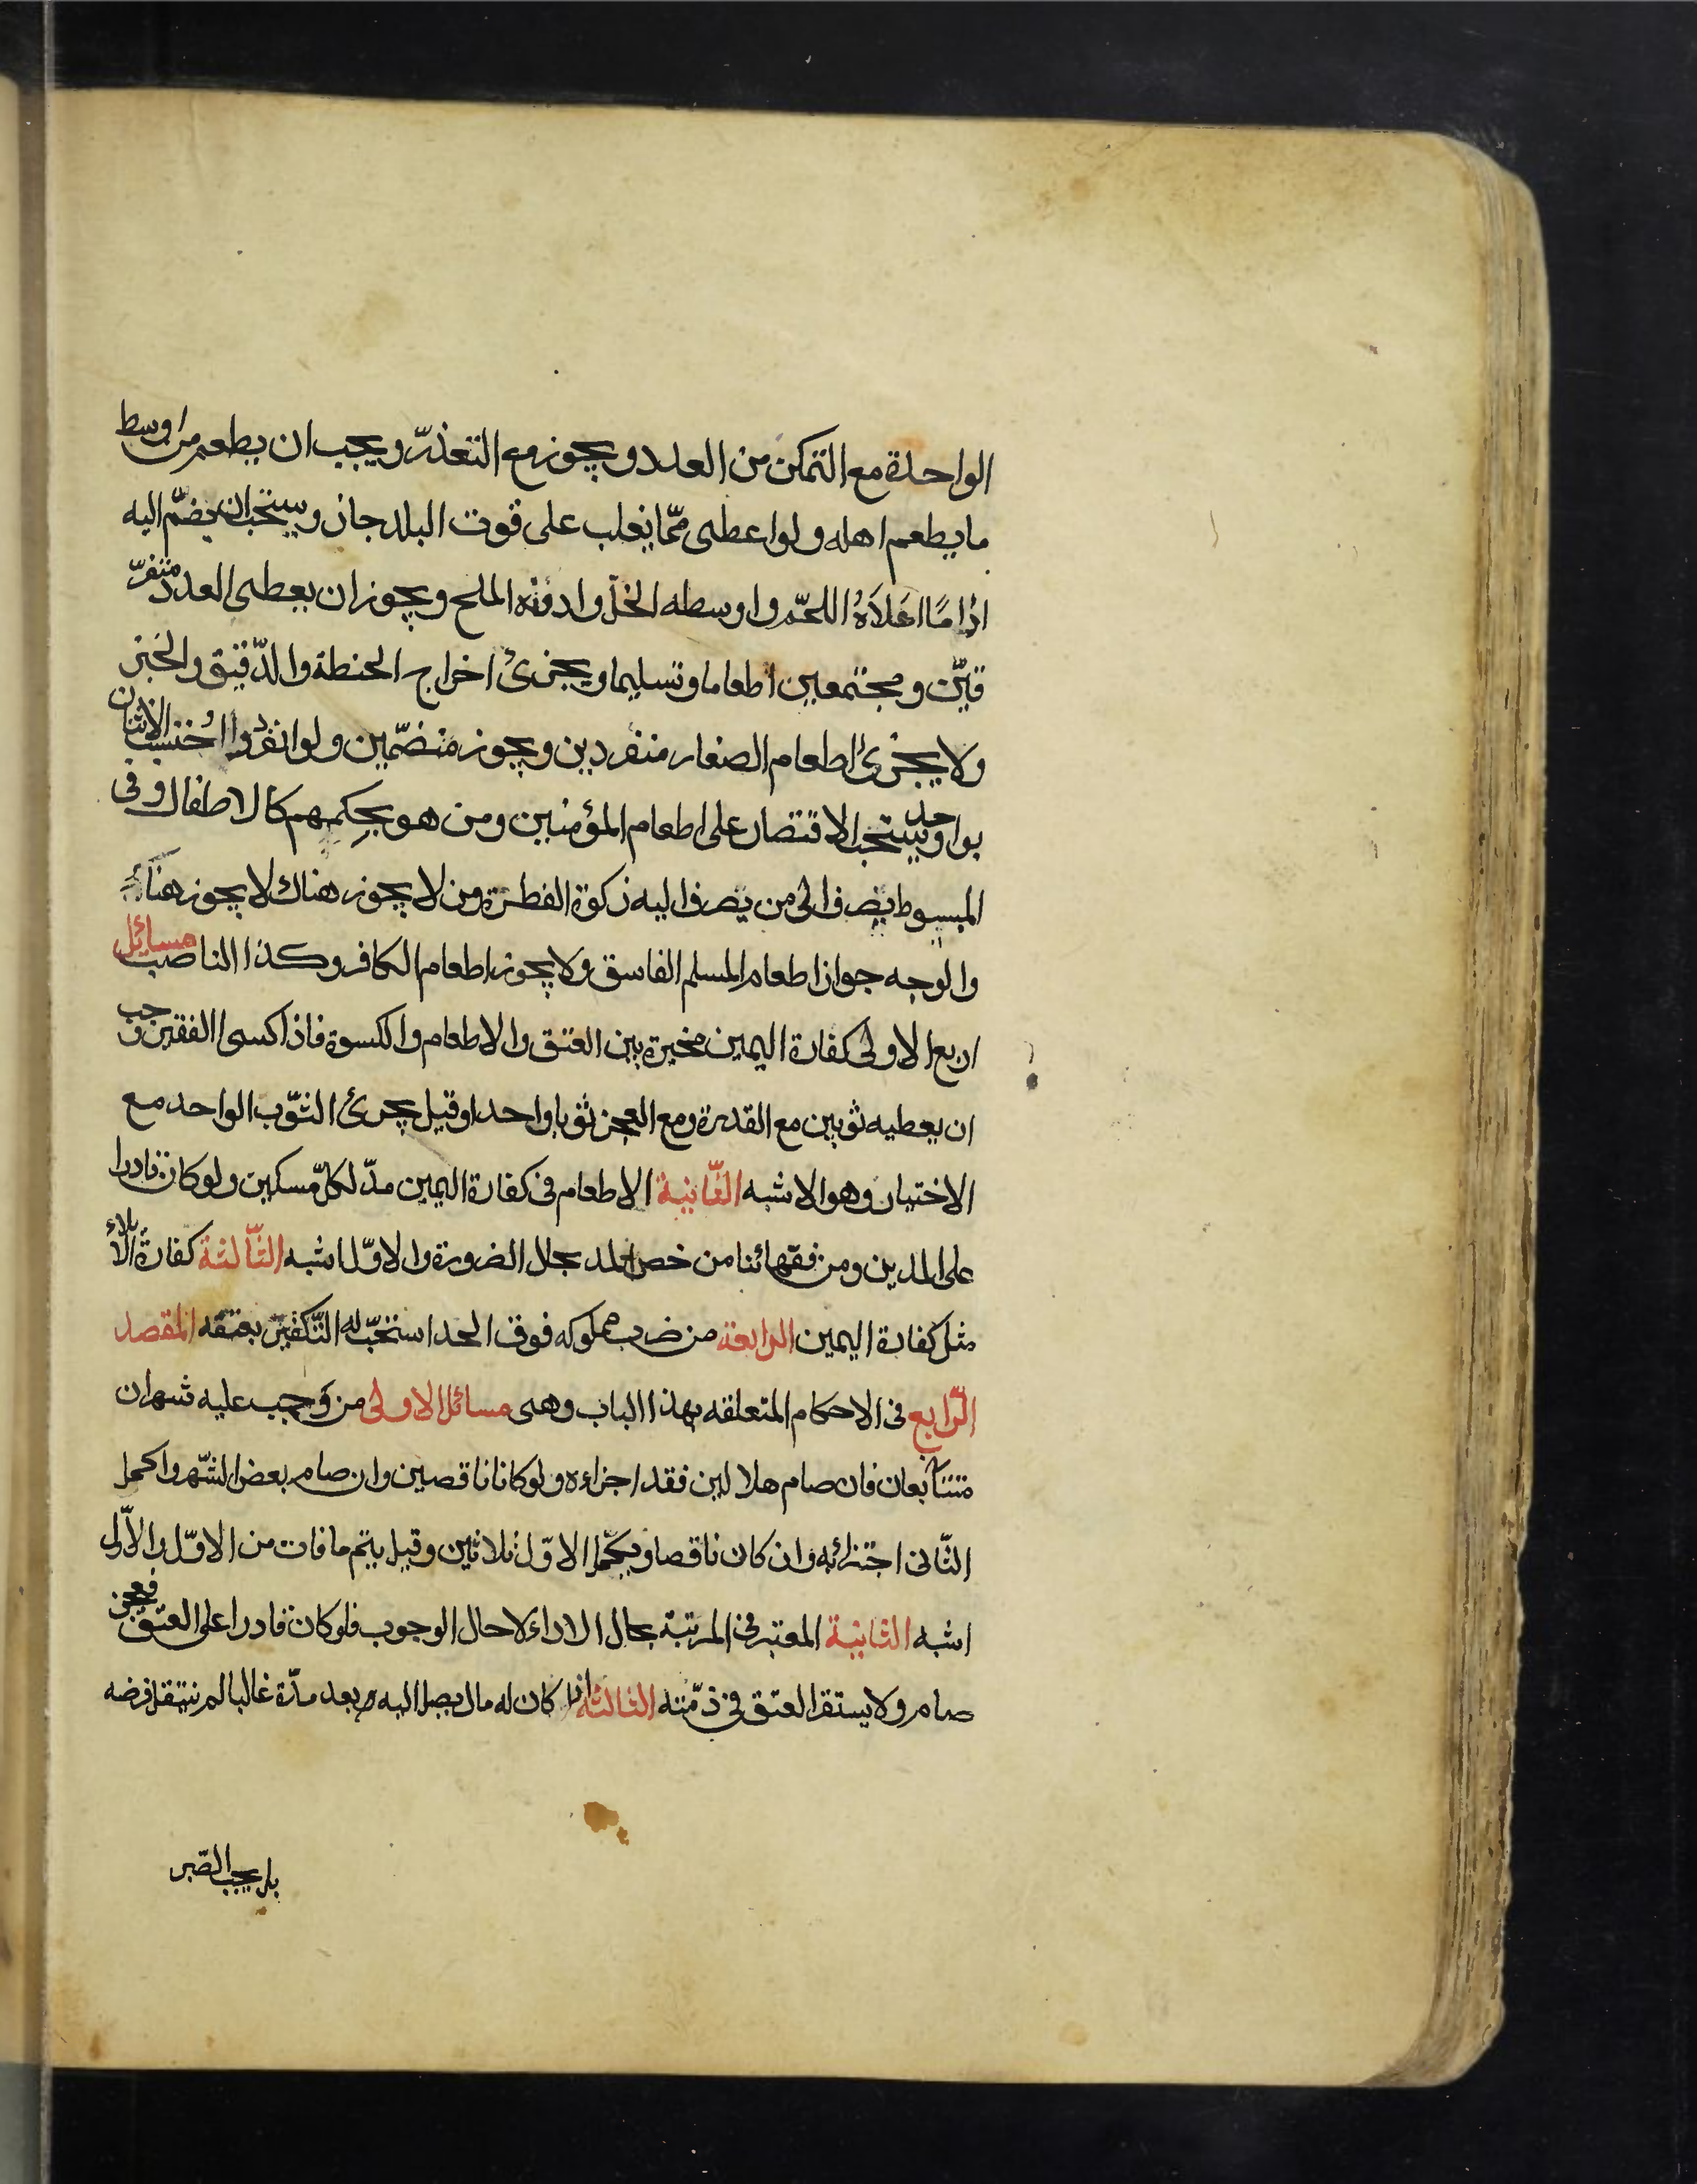 الواحدة مع التمكن من العدد و يجوز مع التعذّر و يجب ان يطعم من اوسط
ما يطعم اهله و لو اعطى ممّا يغلب على قوت البلد جاز و يستحب ان يضمّ اليه
اداماً اعلاهُ اللحم و اوسطه الخلّ و ادونه الملح و يجوز ان يعطى العدد متفرّ
قيّن و مجتمعين اطعاما و تسليما و يجزئ اخراج الحنطة و الدّقيق و الخبز
و لا يجزئ اطعام الصغار منفردين و يجوز منضمّين و لو انفردوا اُحتسب الاثنان
بواحد و يستحب الاقتصار على اطعام المؤمنين و من هو بحكمهم كالاطفال و فى
المبسوط يصرف الى من يصرف اليه زكوة الفطرة و من لا يجوز هناك لا يجوز هنا
و الوجه جواز اطعام المسلم الفاسق و لا يجوز اطعام الكافر و كذا الناصب مسائل
اربع الاولى كفارة اليمين مخيرة بين العتق و الاطعام و الكسوة فاذا كسى الفقير وجب
ان يعطيه ثوبين مع القدرة و مع العجز ثوبا واحدا و قيل يجزئ الثّوب الواحد مع
الاختيار و هو الاشبه الثّانية الاطعام فى كفارة اليمين مدّ لكلّ مسكين و لو كان قادرا
على المدين و من فقهائنا من خص المد بحال الضرورة و الاوّل اشبه الثّالثة كفارة الايلاء
مثل كفارة اليمين الرابعة من ضرب مملوكه فوق الحد استحبّ له التّكفير بعتقه المقصد
الرّابع فى الاحكام المتعلقه بهذا الباب و هى مسائل الاولى من وَجب عليه شهران
متتابعان فان صام هلالين فقد اجزاءه و لو كانا ناقصين و ان صام بعض الشّهر و اكمل
الثّانى اجتزائه و ان كان ناقصا و يكمّل الاوّل ثلاثين و قيل يتم ما فات من الاوّل و الاوّل
اشبه الثانية المعتبر فى المرتبة بحال الاداء لا حال الوجوب فلو كان قادرا على العتق فعجز
صام و لا يستقر العتق فى ذمّته الثالثة اذا كان له مال يصل اليه بعد مدّة غالبا لم ينتقل فرضه
بل يجب الصّبر